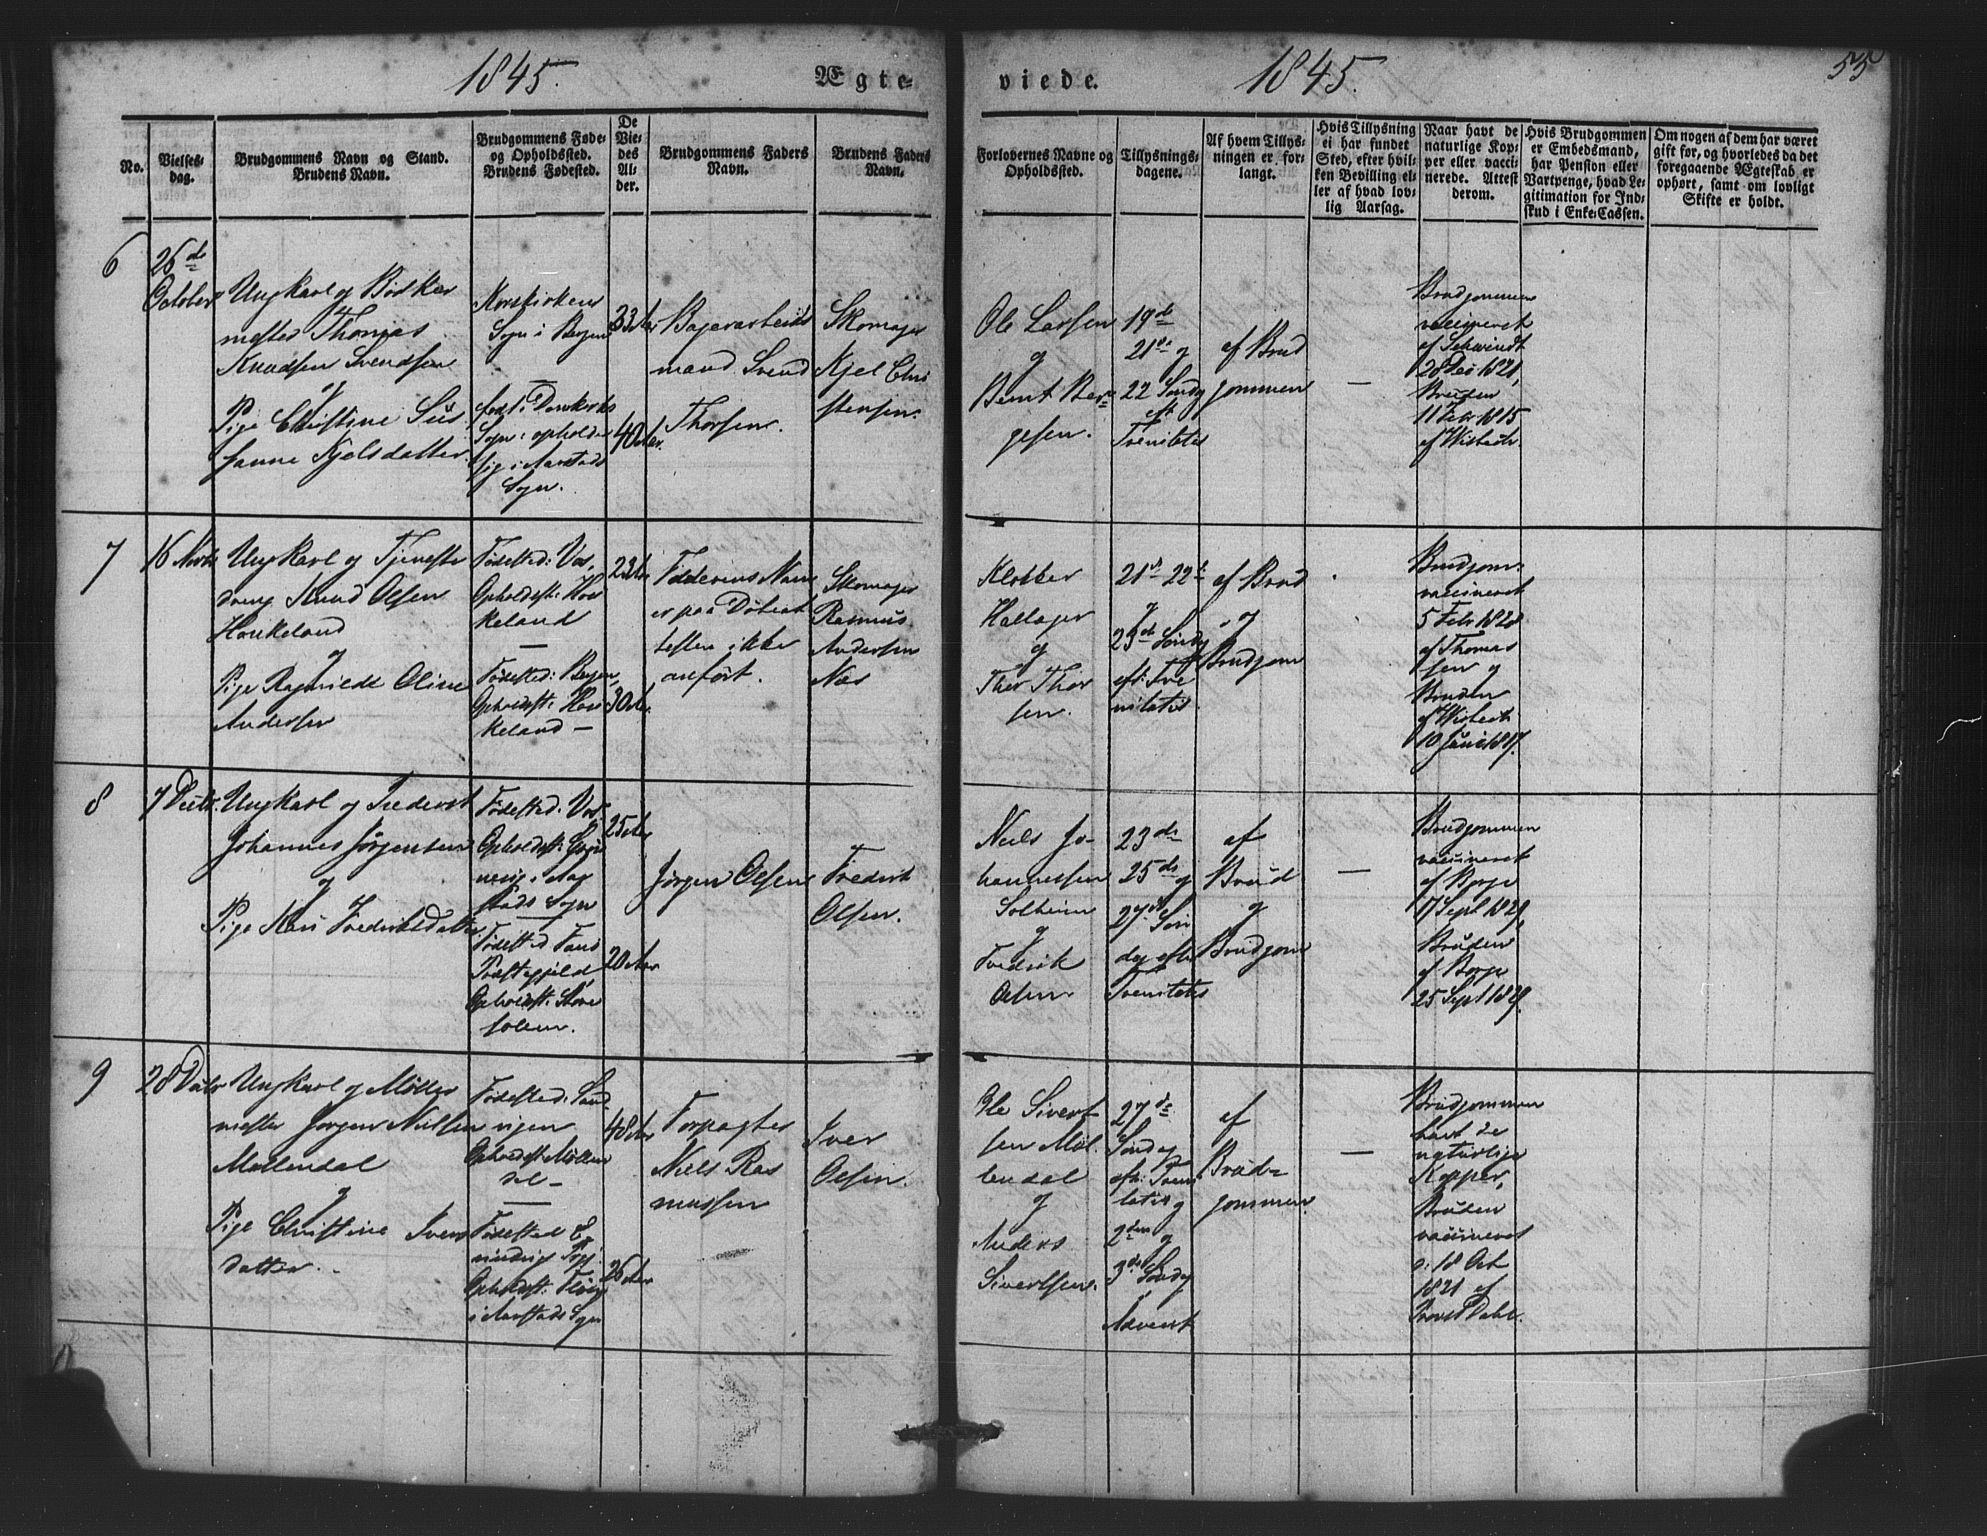 1845.
Ægte-
viede.
1845.
55
No.
Vielses-
dag.
Brudgommens Navn og Stand.
Brudens Navn.
Brudgommens Føde-
og Opholdssted.
Brudens Fødested.
De
Vie-
des
Al-
der.
Brudgommens Faders
Navn.
Brudens Faders
Navn.
Forlovernes Navne og
Opholdssted.
Tillysnings-
dagene.
Af hvem Tillys-
ningen er for-
langt.
Hvis Tillysning
ei har fundet
Sted, efter hvil-
ken Bevilling el-
ler af hvad lov-
lig Aarsag.
Naar havt de
naturlige Kop-
per eller vacci-
nerede. Attest
derom.
Hvis Brudgommen
er Embedsmand,
har Pension eller
Vartpenge, hvad Le-
gitimation for Ind-
skud i Enke-Cassen.
Om nogen af dem har været
gift før, og hvorledes da det
foregaaende Ægteskab er
ophørt, samt om lovligt
Skifte er holdt.
6
26de
October
Ungkarl og Bødker
mester Thomas
Knudsen Svendsen
og
Pige Christine Su-
sanne Kjelsdatter
Korskirkens
Sogn i Bergen
—
født i Domkirke
Sogn, opholder
sig i Aarstads
Sogn.
33 Aar
40 Aar.
mand Svend
Thorsen.
Skomager
Kjel Chri
stensen.
Ole Larsen
og
Bernt Ber-
gesen.
19de
21de og
22 Søndg
eft
Trenitatis
af Brud
gommen
—
Brudgommen
vaccineret
af Schwindt
28 Dec 1821,
Bruden
11 Febr 1815
af Wisbech
7
16 Novbr
Ungkarl og Tjeneste
dreng Knud Olsen
Haukeland
og
Pige Ragnilde Oline
Andersen
Fødested: Vos,
Opholdsst: Hou
keland
—
Fødested: Bergen,
Opholdsst: Hou
keland —
23 Aar
30 Aar.
Faderens Navn
er paa Døbeat
testen ikke
anført.
Skomager
Rasmus
Andersen
Næs
Klokker
Hallager
og
Thor Thor
sen.
21de 22de
og
23de Søndg
eft: Tre
nitatis
af Brud
og
Brudgom
Brudgom-
vaccineret
5 Febr 1828
af Thomas
sen og
Bruden
af Wisbech
10 Juni 1817.
8
7 Decbr.
Ungkarl og Frederik
Johannes Jørgensen
og
Pige Kari Frederiksdatter
Fødested: Vos,
stads Sogn
—
Fødested Fane
Præstegjeld
Opholdsst: Store
solem.
25 Aar
20 Aar
Jørgen Olsen
Fredrik
Olsen.
Niels Jo-
hannessen
Solheim
og
Fredrik
Olsen
23de
25de og
27de Søn
dag efter
Trenitatis
af
Brud
og
Brudgom
—
Brudgommen
vaccineret
af Børge
17 Sept 1829,
Bruden
af Børge
25 Sept 1829.
9
28 Decbr
Ungkarl og Møller
mester Jørgen Nielsen
Møllendal
og
Pige Christine Ivers
datter.
Fødested: Sand
vigen
Opholdsst: Møllen
dal —
—
Fødested E
vindvig Prgj.
Opholdsst: Fløen
i Aarstads Sogn
48 Aar
26 Aar
Forpagter
Niels Ras
mussen
Iver
Olsen.
Ole Sivert
sen Møl
lendal
og
Anders
Sivertsen.
27de
Søndag
eft: Treni
tatis og
2den og
3de Søndg
i
Advent
af
Brud-
gommen
—
Brudgommen
havt de
naturlige
Kopper,
Bruden
vaccineret
d: 18 Oct
1821 af
Provst Dahl.